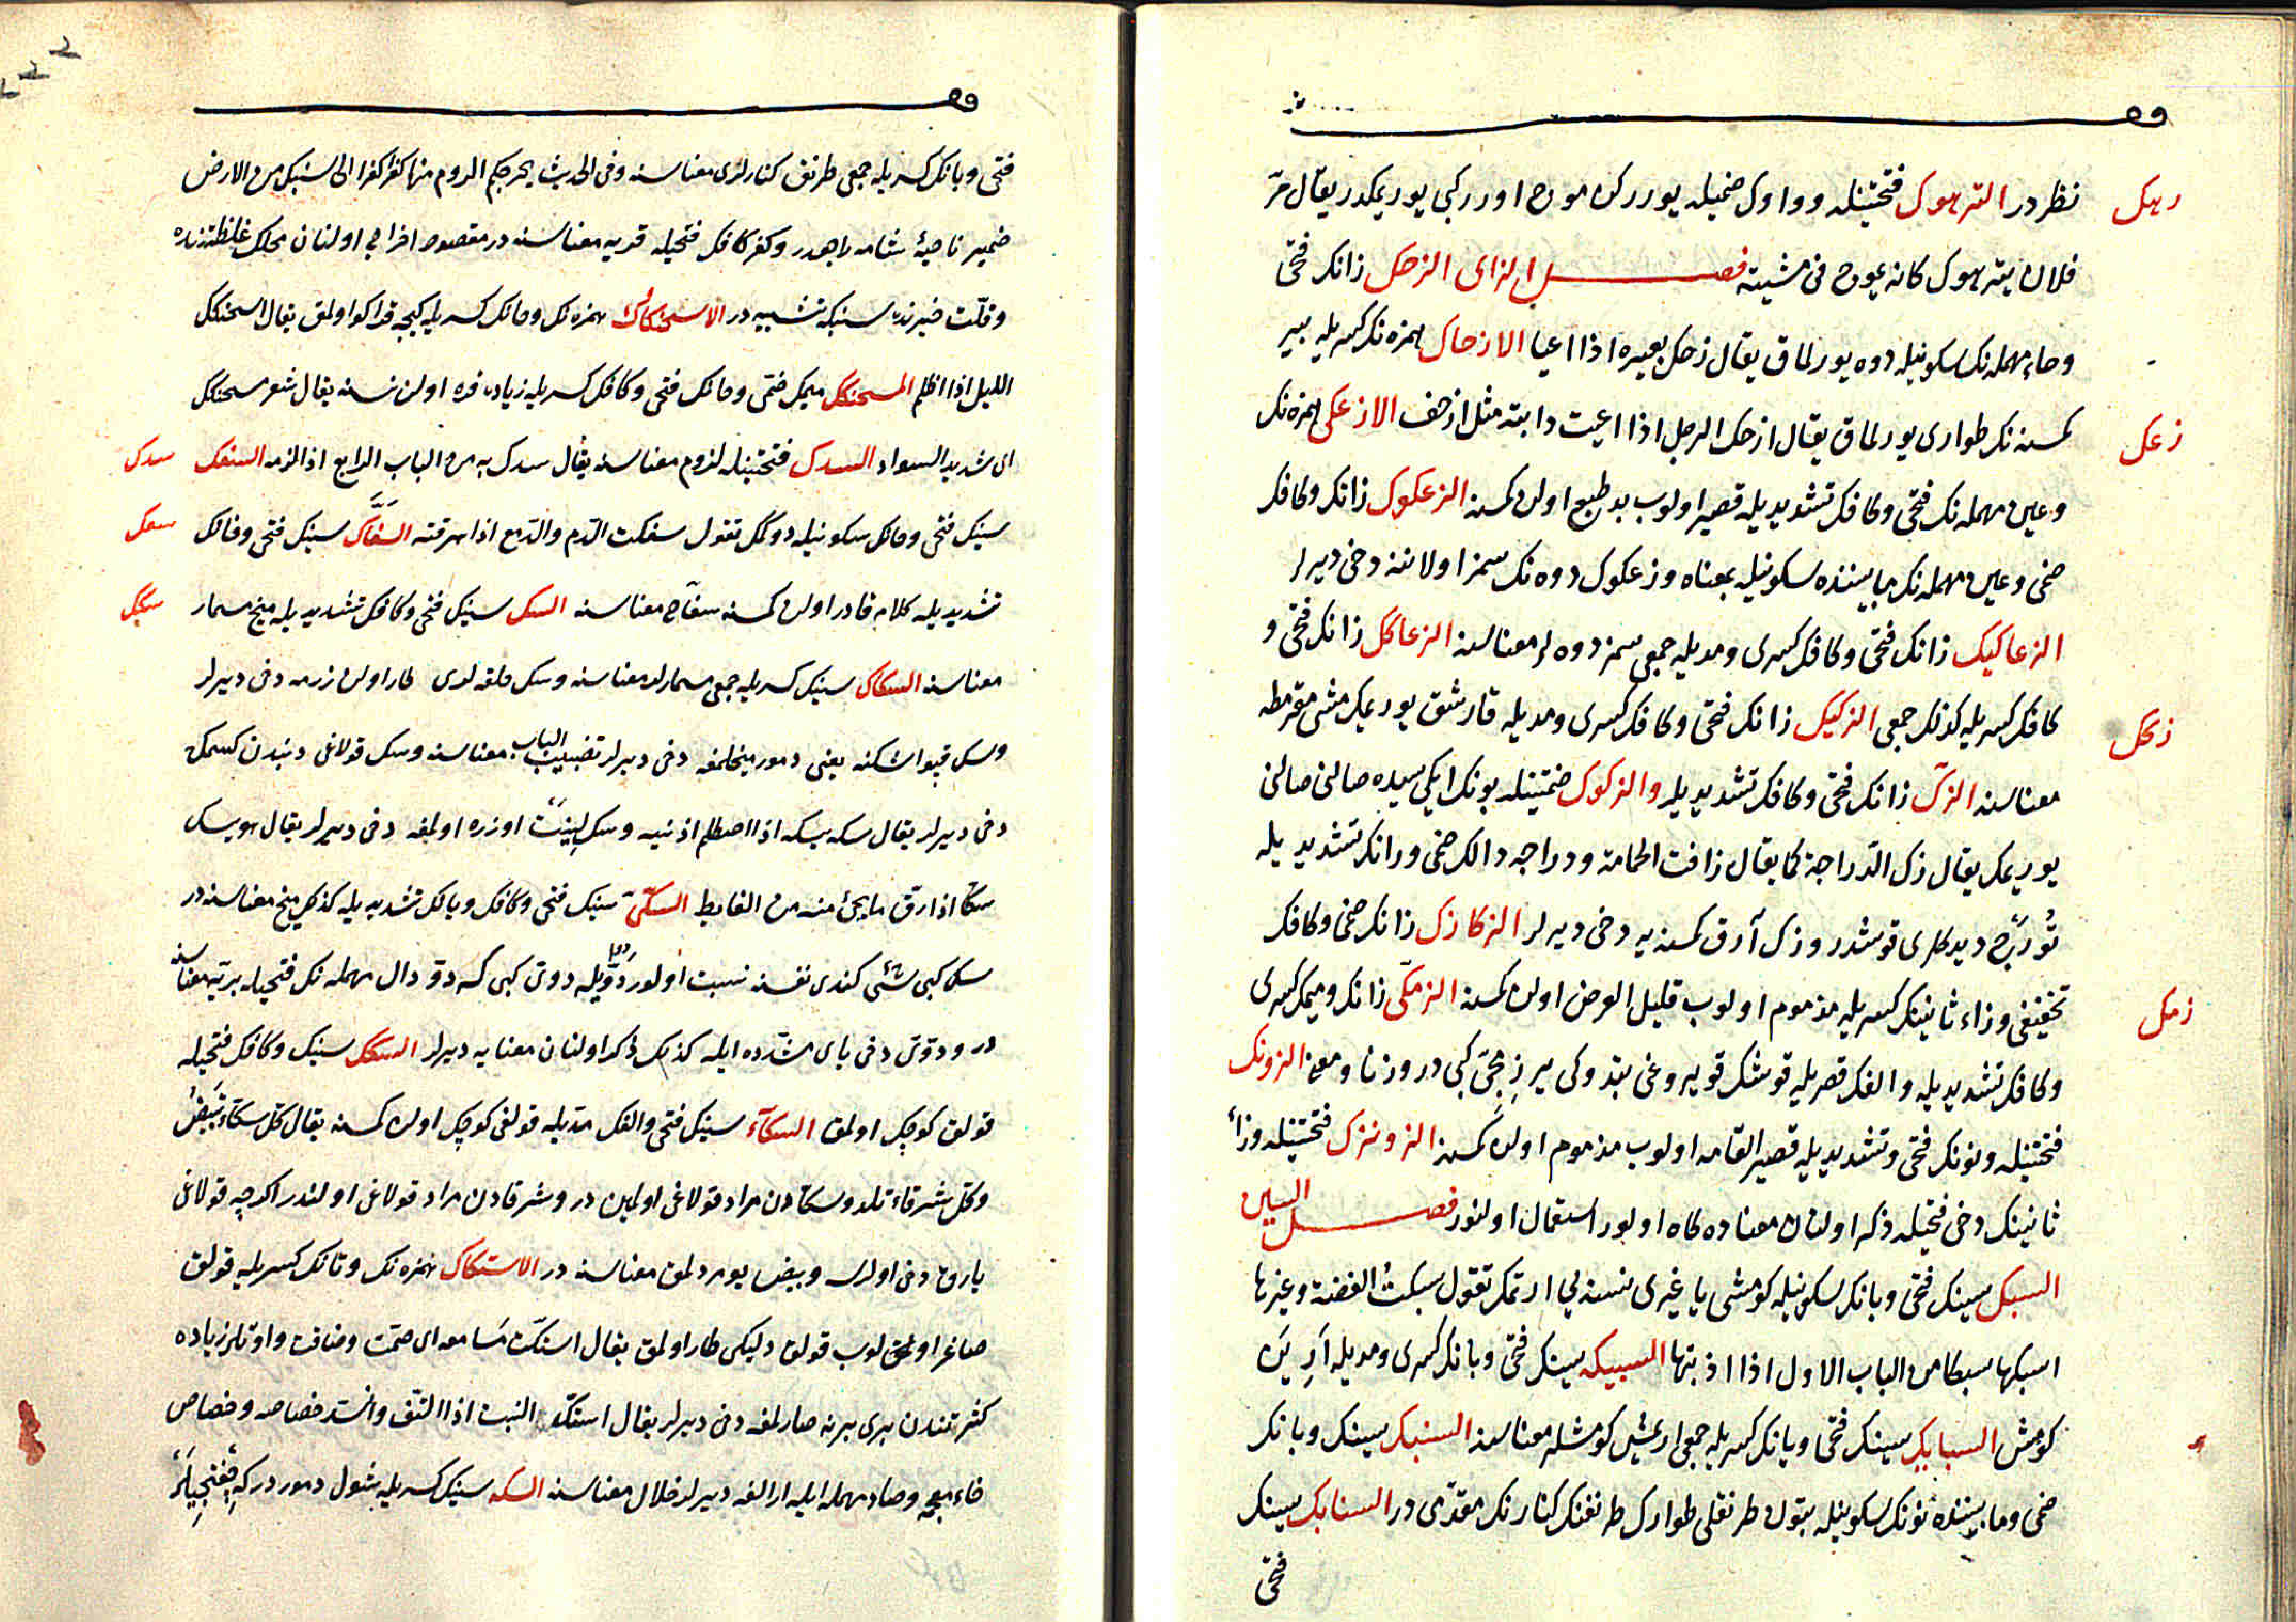 رهك
نظردر الترهوك فتحتينله وواوك ضميله يوررکن موج اورركبی يوريمكدر يقال مرّ
فلان يترهوك كانه يموج فی مشيته فصل الزای الزحك زانك فتحی
وحاء مهمله‌نك سكونيله دوه يورلماق يقال زحك بعيره اذا اعيا الازحاك همزه‌نك كسريله بير
زعك
كمسنه‌نك طواری يورلماق يقال ازحك الرجل اذا اعيت دابته مثل ازحف الازعكی همزه‌نك
وعين مهمله‌نك فتحی وكافك تشديديله قصير اولوب بد طبع اولن كمسنه الزعكوك زانك وكافك
ضمی وعين مهمله‌نك مابيننده سكونيله بمعناه وزعكوك دوه‌نك سمز اولاننه دخی ديرلر
الزعاكيك زانك فتحی وكافك كسری ومديله جمعی سمز دوه‌لر معناسنه الزعاكك زانك فتحی و
زكك
كافك كسريله كذلك جمعی الزكيك زانك فتحی وكافك كسری ومديله قارشق يوريمك مشی مقرمطه
معناسنه الزكّ زانك فتحی وكافك تشديديله والزكوك ضمتينله بونك ايكيسيده صالنی صالنی
يوريمك يقال زك الدراجة كما يقال زافت الحمامة ودراجه دالك ضمی ورانك تشديديله
تورج ديدكلری قوشدر وزك آرق كمسنه‌يه دخی ديرلر الزكازك زانك ضمی وكافك
زمك
تخفيفی وزاء ثانينك كسريله مذموم اولوب قليل العرض اولن كمسنه الزمكّی زانك وميمك كسری
وكافك تشديديله والفك قصريله قوشك قويروغی بتدوكی ير زمجّی كبی در وزنا ومعنا الزونك
فتحتينله ونونك فتحی وتشديديله قصير القامه اولوب مذموم اولن كمسنه الزونزك فتحتينله وزاء
ثانينك دخی فتحيله ذكر اولنان معناده كاه اولور استعمال اولنور فصل السين
السبك سينك فتحی وبانك سكونيله كومشی يا غيری نسنه‌يی ارتمك تقول سبكتُ الفضة وغيرها
اسبكها سبكا من الباب الاول اذا اذبتها السبيكه سينك فتحی وبانك كسری ومديله اريين
كومش السبايك سينك فتحی ويانك كسريله جمعی ارعش كومشلر معناسنه السنبك سينك وبانك
ضمی ومابيننده نونك سكونيله بتون طرنقلی طوارك طرنقنك كنارنك مقدّمی در السنابك سينك
فتحی
فتحی وبانك كسريله جمعی طرنق كنارلری معناسنه وفی الحديث يخرجكم الروم منها كفرا كفرا الی سنبك من الارض
ضمير ناحيهٔ شامه راجعدر وكفر كافك فتحيله قريه معناسنه در مقصود اخراج اولنان محلك غلظتنده
وقلّت خيرنده سنبكه تشبيه در الاسحنكاك همزه‌نك وحانك كسريله كيجه قراكو اولمق يقال اسحنكك
الليل اذا اظلم المسحنكك ميمك ضمی وحانك فتحی وكافك كسريله زياده قره اولن نسنه يقال شعر مسحنكك
سدك
ای شديد السواد السدك فتحتينله لزوم معناسنه يقال سدك به من الباب الرابع اذا لزمه السفك
سفك
سينك فتحی وفانك سكونيله دوكمك تقول سفكت الدّم والدّمع اذا هرقته السفّاك سينك فتحی وفانك
سكك
تشديديله كلامه قادر اولن كمسنه سفاح معناسنه السك سينك فتحی وكافك تشديديله ميخ مسمار
معناسنه السكاك سينك كسريله جمعی مسمارلر معناسنه وسك حلقه‌لری طار اولن زرهه دخی ديرلر
وسك قپو اشكنه يعنی دمور ميخلمغه دخی ديرلر تضبيب الباب معناسنه وسك قولاغی دبندن كسمكه
دخی ديرلر يقال سكه يسكه اذا اصطلم اذنيه وسك لينت اوزره اولمغه دخی ديرلر يقال هو يسك
سكّا اذا رقّ ما يجئ منه من الغايط السكّیّ سينك فتحی وكافك ويانك تشديديله كذلك ميخ معناسنه در
سك كبی شئی كندی نفسنه نسبت اولور دوّيله دوی كبی كه دوّ دال مهمله‌نك فتحيله بريّه معناسنه
در ودوّی دخی يای مشدده ايله كذلك ذكر اولنان معنايه ديرلر السكك سينك وكافك فتحيله
قولق كوچك اولمق السكّآء سينك فتحی والفك مدّيله قولغی كوچك اولن كمسنه يقال كل سكّاء تبيضُ
وكل شرقاء تلد وسكّادن مراد قولاغی اولمين در وشرقادن مراد قولاغی اولندر اكرچه قولاغی
ياروق دخی اولرسه وبيض يومردلمق معناسنه در الاستكاك همزه‌نك وتانك كسريله قولق
صاغر اولمق لوب قولق دليكی طار اولمق يقال استكّت مسامعه ای صمّت وضاقت واوتلر زياده
كثرتندن بری برينه صارلمغه دخی ديرلر يقال استكّ النبت اذا التفّ وانسد خصاصه وخصاص
خاء معجمه وصاد مهمله ايله ارالغه ديرلر خلال معناسنه السكه سينك كسريله شول دمور در كه چفتجيلر